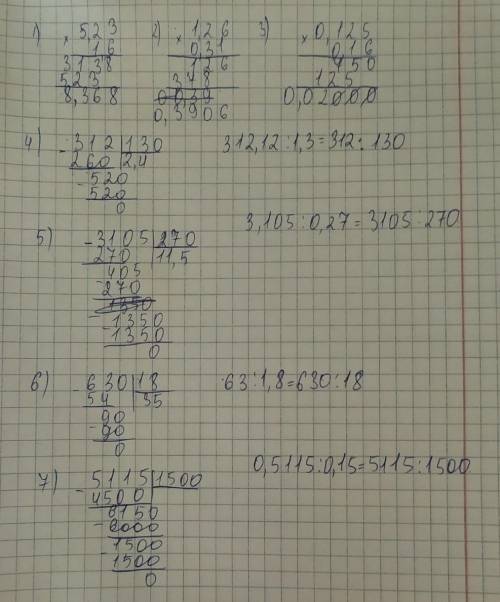 1) × 5,23 2) × 1,26 3) × 0,125
1 6 0,31 0,16
3138 126 750
523 378 125
8,368 0,3906 0,02000
4) - 312 | 130 312,12 : 1,3 = 312 : 130
260 | 2,4
- 520
520
0
3,105 : 0,27 = 3105 : 270
5) - 3105 | 270
270 | 11,5
405
- 270
1350
- 1350
1350
0
6) - 630 | 18 63 : 1,8 = 630 : 18
54 | 35
- 90
90
0
7) - 5115 | 1500 0,5115 : 0,15 = 5115 : 1500
4500
6150
- 6000
- 1500
1500
0